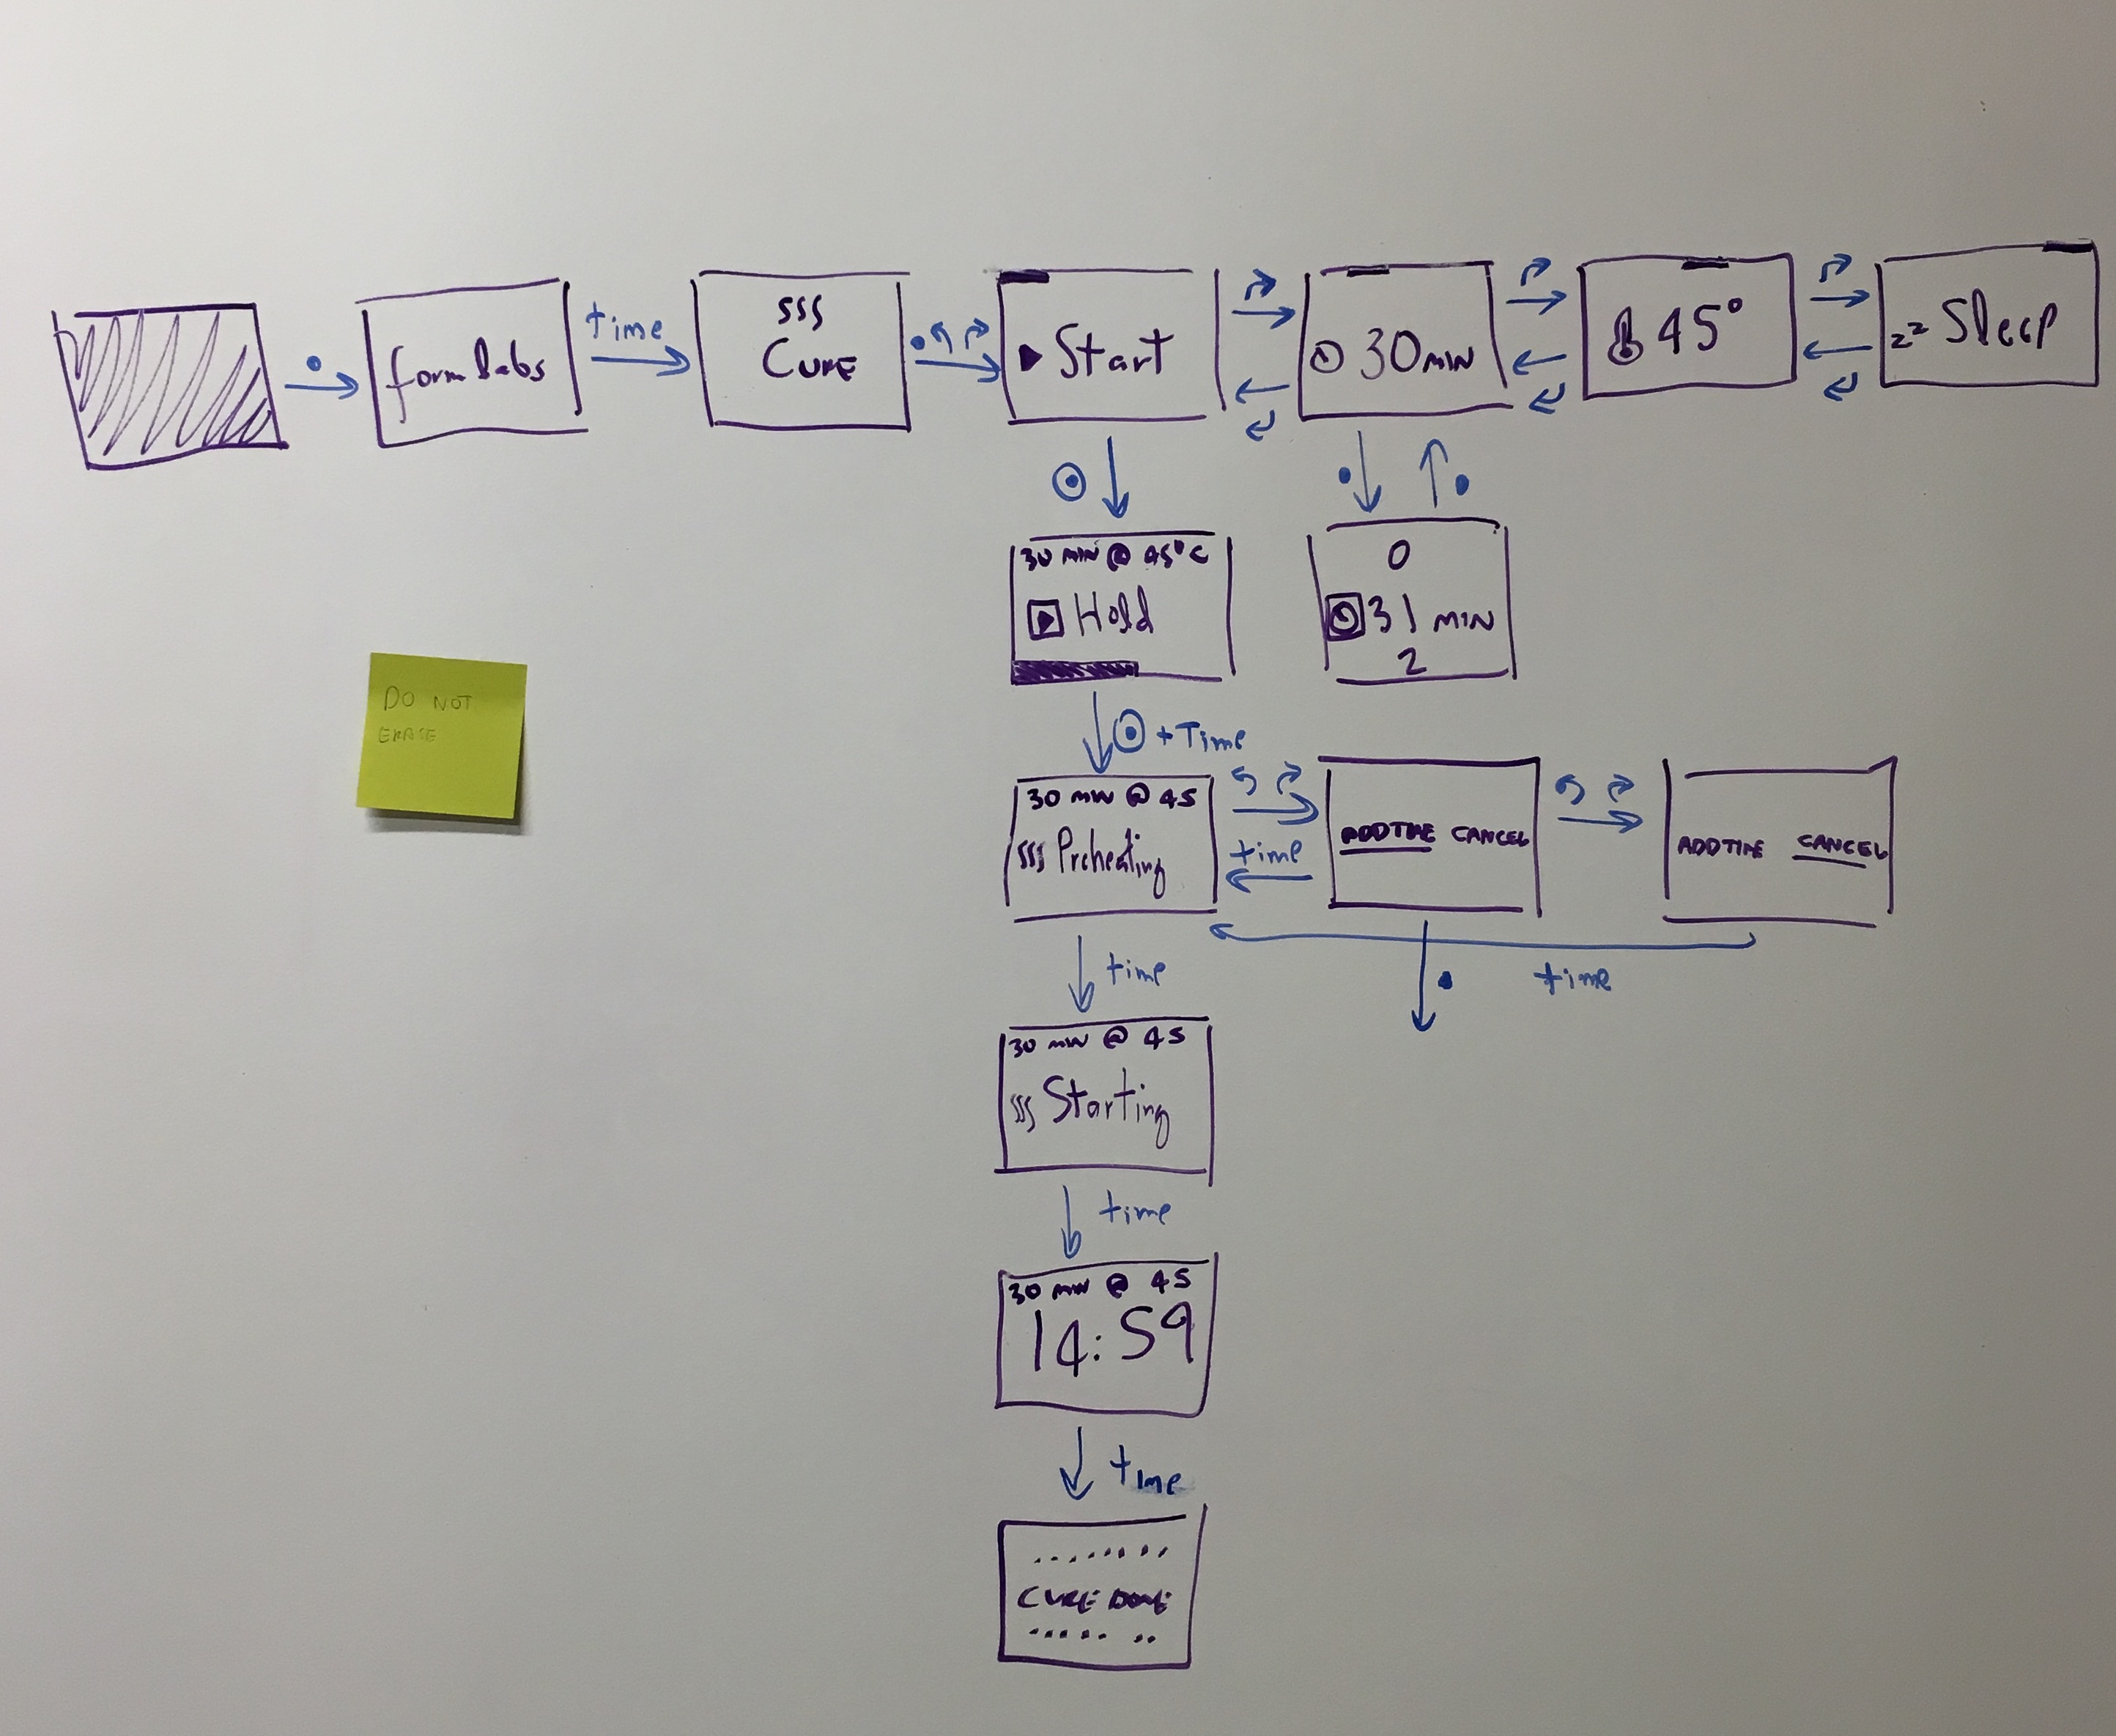 formlabs
time
sss
CURE
Start
30 MIN
45°
zz Sleep
30 MIN @ 45°C
Hold
0
31 MIN
2
DO NOT
ERASE
+ Time
30 MIN @ 45
sss Preheating
time
ADD TIME CANCEL
ADD TIME CANCEL
time
time
30 MIN @ 45
sss Starting
time
30 MIN @ 45
14:59
time
CURE DONE